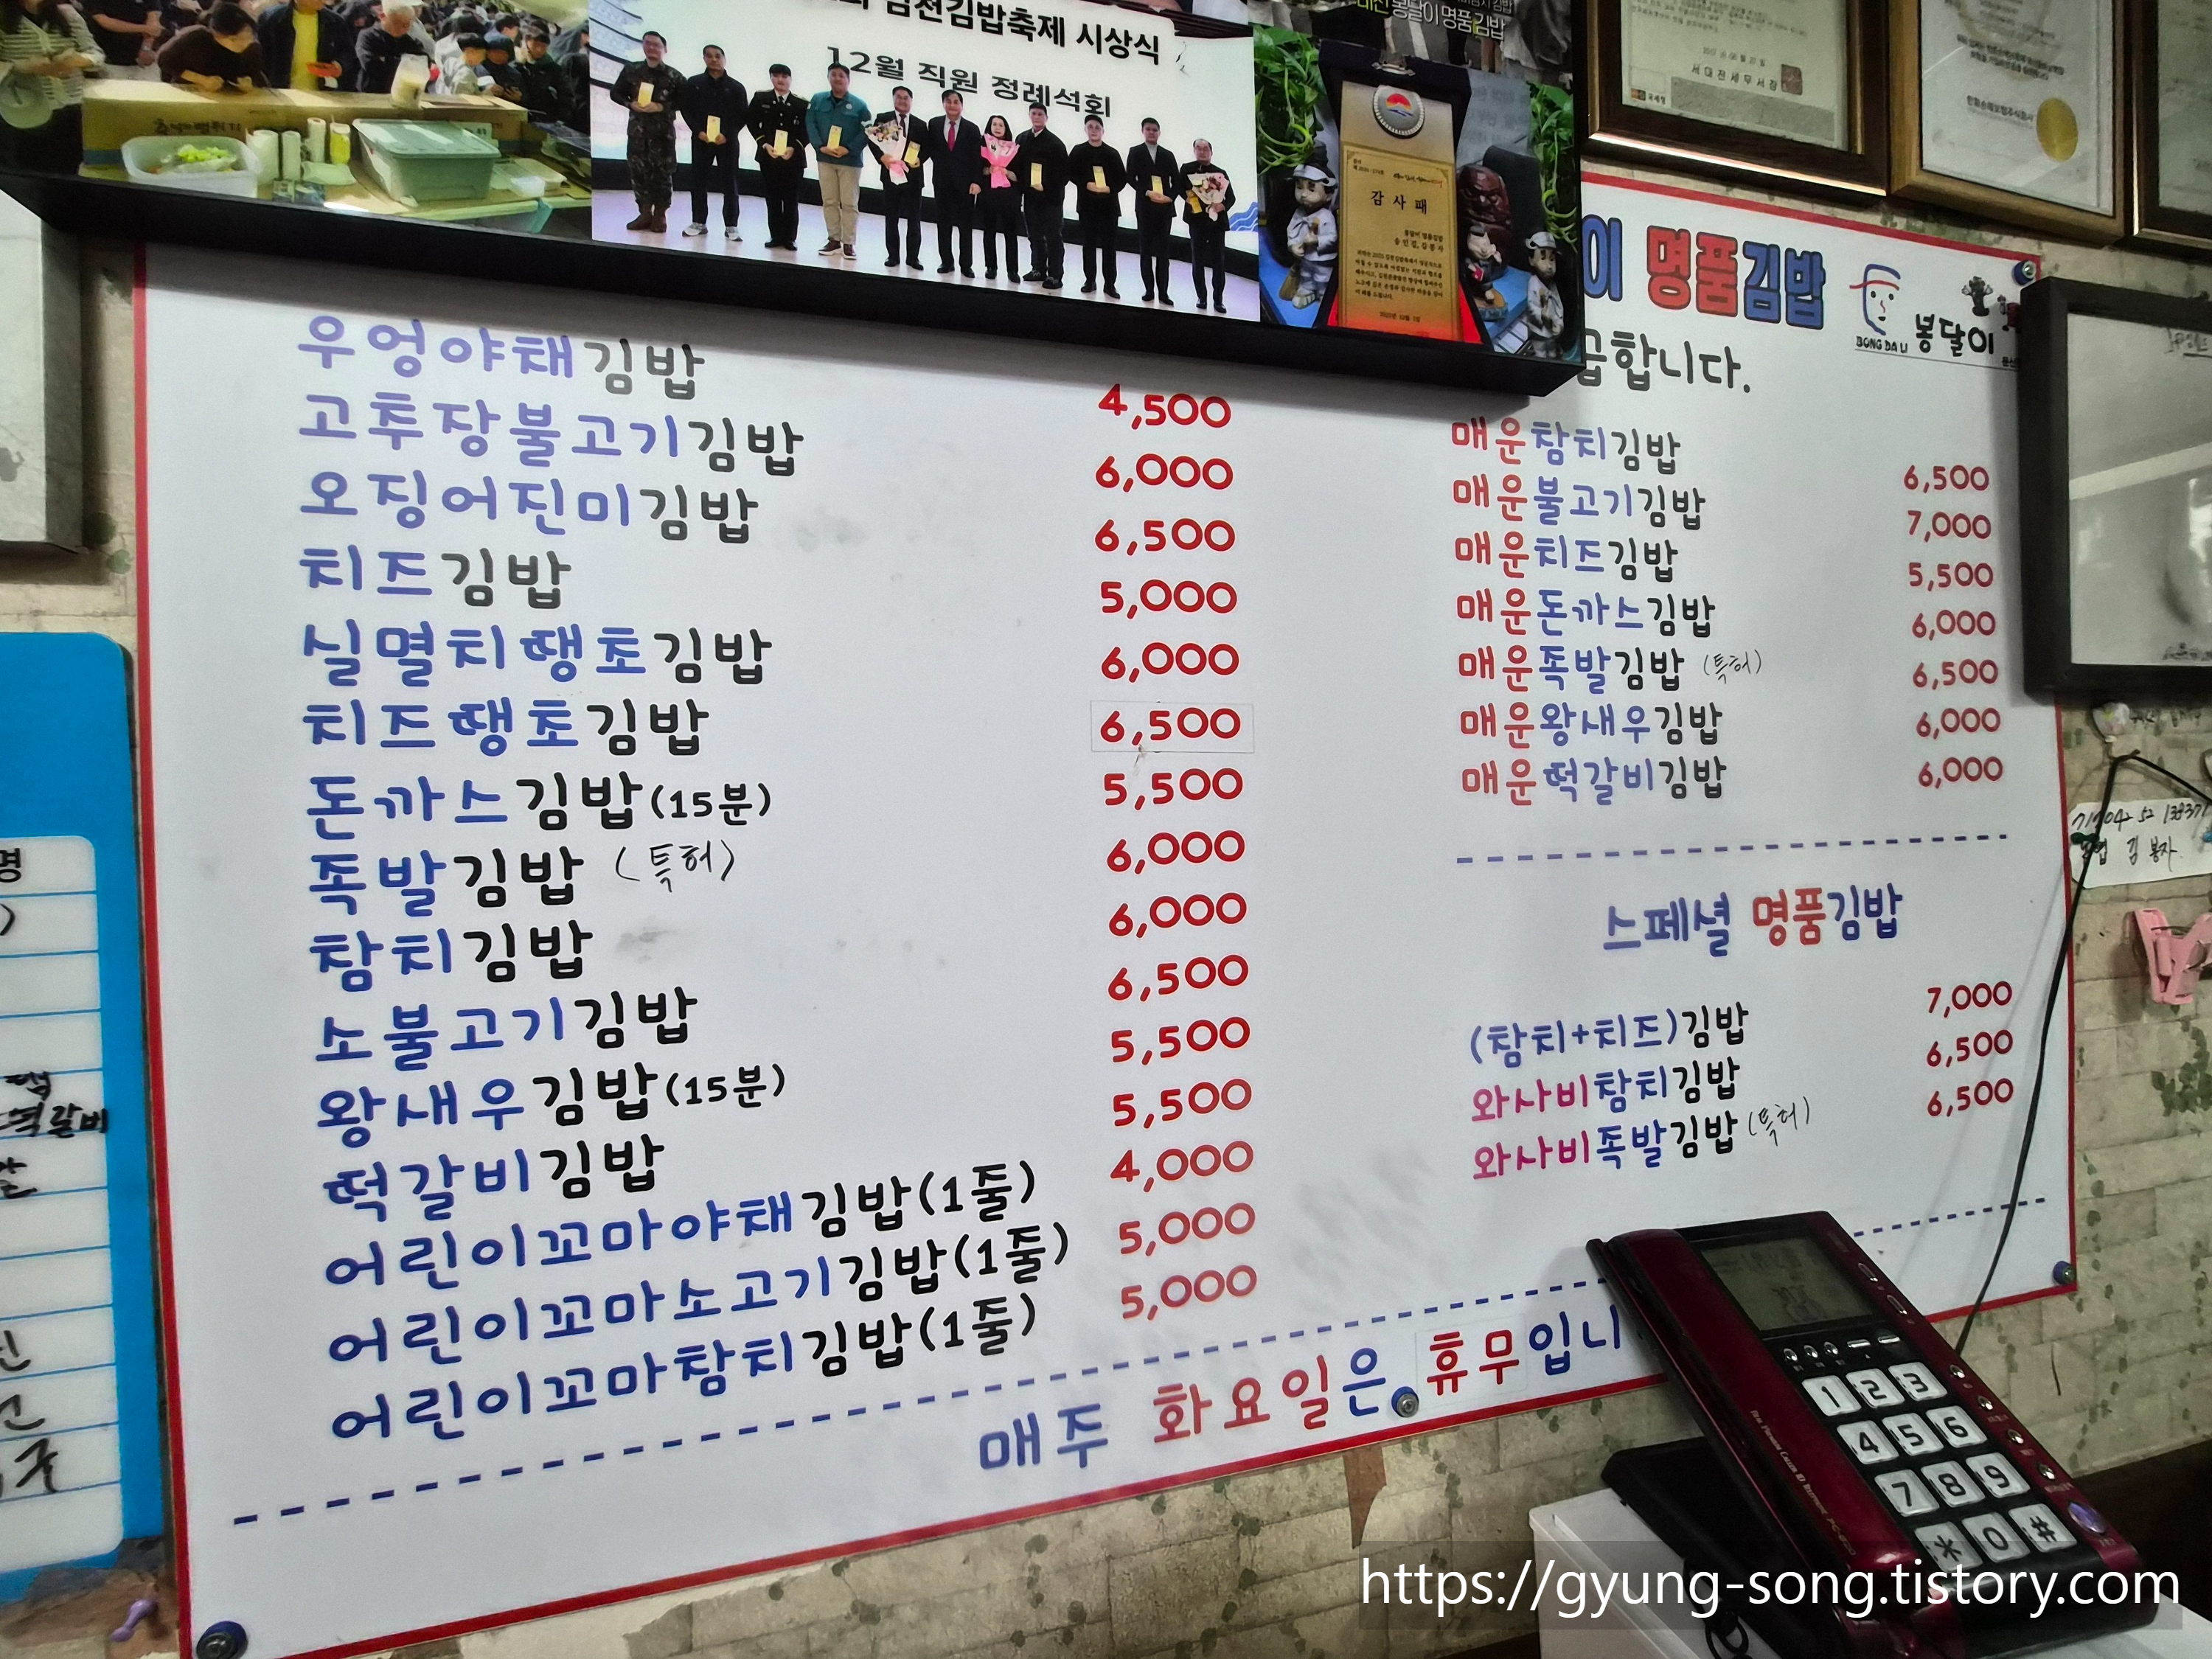 김천김밥축제 시상식
12월 직원 정례석회
봉달이 명품 김밥
감 사 패
서대전세무서장
국세청
이 명품김밥
BONG DA LI 봉달이
급합니다.
우엉야채김밥 4,500
고추장불고기김밥 6,000
오징어진미김밥 6,500
치즈김밥 5,000
실멸치땡초김밥 6,000
치즈땡초김밥 6,500
돈까스김밥(15분) 5,500
족발김밥 (특허) 6,000
참치김밥 6,000
소불고기김밥 6,500
왕새우김밥(15분) 5,500
떡갈비김밥 5,500
어린이꼬마야채김밥(1줄) 4,000
어린이꼬마소고기김밥(1줄) 5,000
어린이꼬마참치김밥(1줄) 5,000
매운참치김밥 6,500
매운불고기김밥 7,000
매운치즈김밥 5,500
매운돈까스김밥 6,000
매운족발김밥 (특허) 6,500
매운왕새우김밥 6,000
매운떡갈비김밥 6,000
스페셜 명품김밥
(참치+치즈)김밥 7,000
와사비참치김밥 6,500
와사비족발김밥 (특허) 6,500
매주 화요일은, 휴무입니
명
떡갈비
1 2 3
4 5 6
7 8 9
* 0 #
https://gyung-song.tistory.com